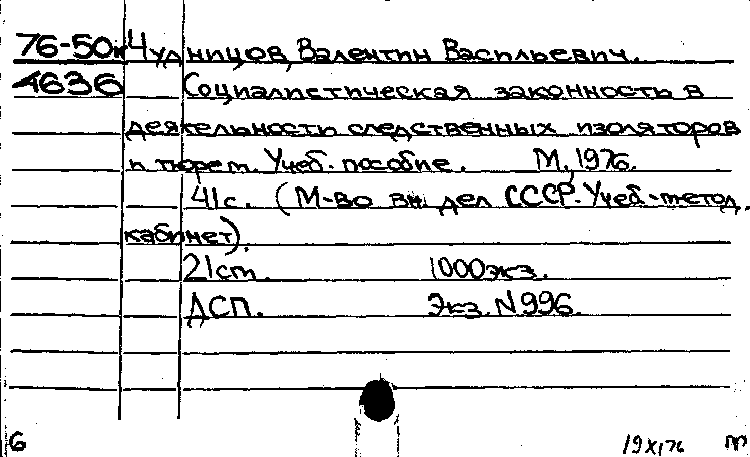 76-50к Чудницов, Валентин Васильевич.
4636 Социалистическая законность в
деятельности следственных изоляторов
и тюрем. Учеб. пособие. М., 1976.
41 с. (М-во вн. дел СССР. Учеб.-метод.
кабинет).
21 cm. 1000 экз.
ДСП. Экз. N 996.
6 19 XI 76